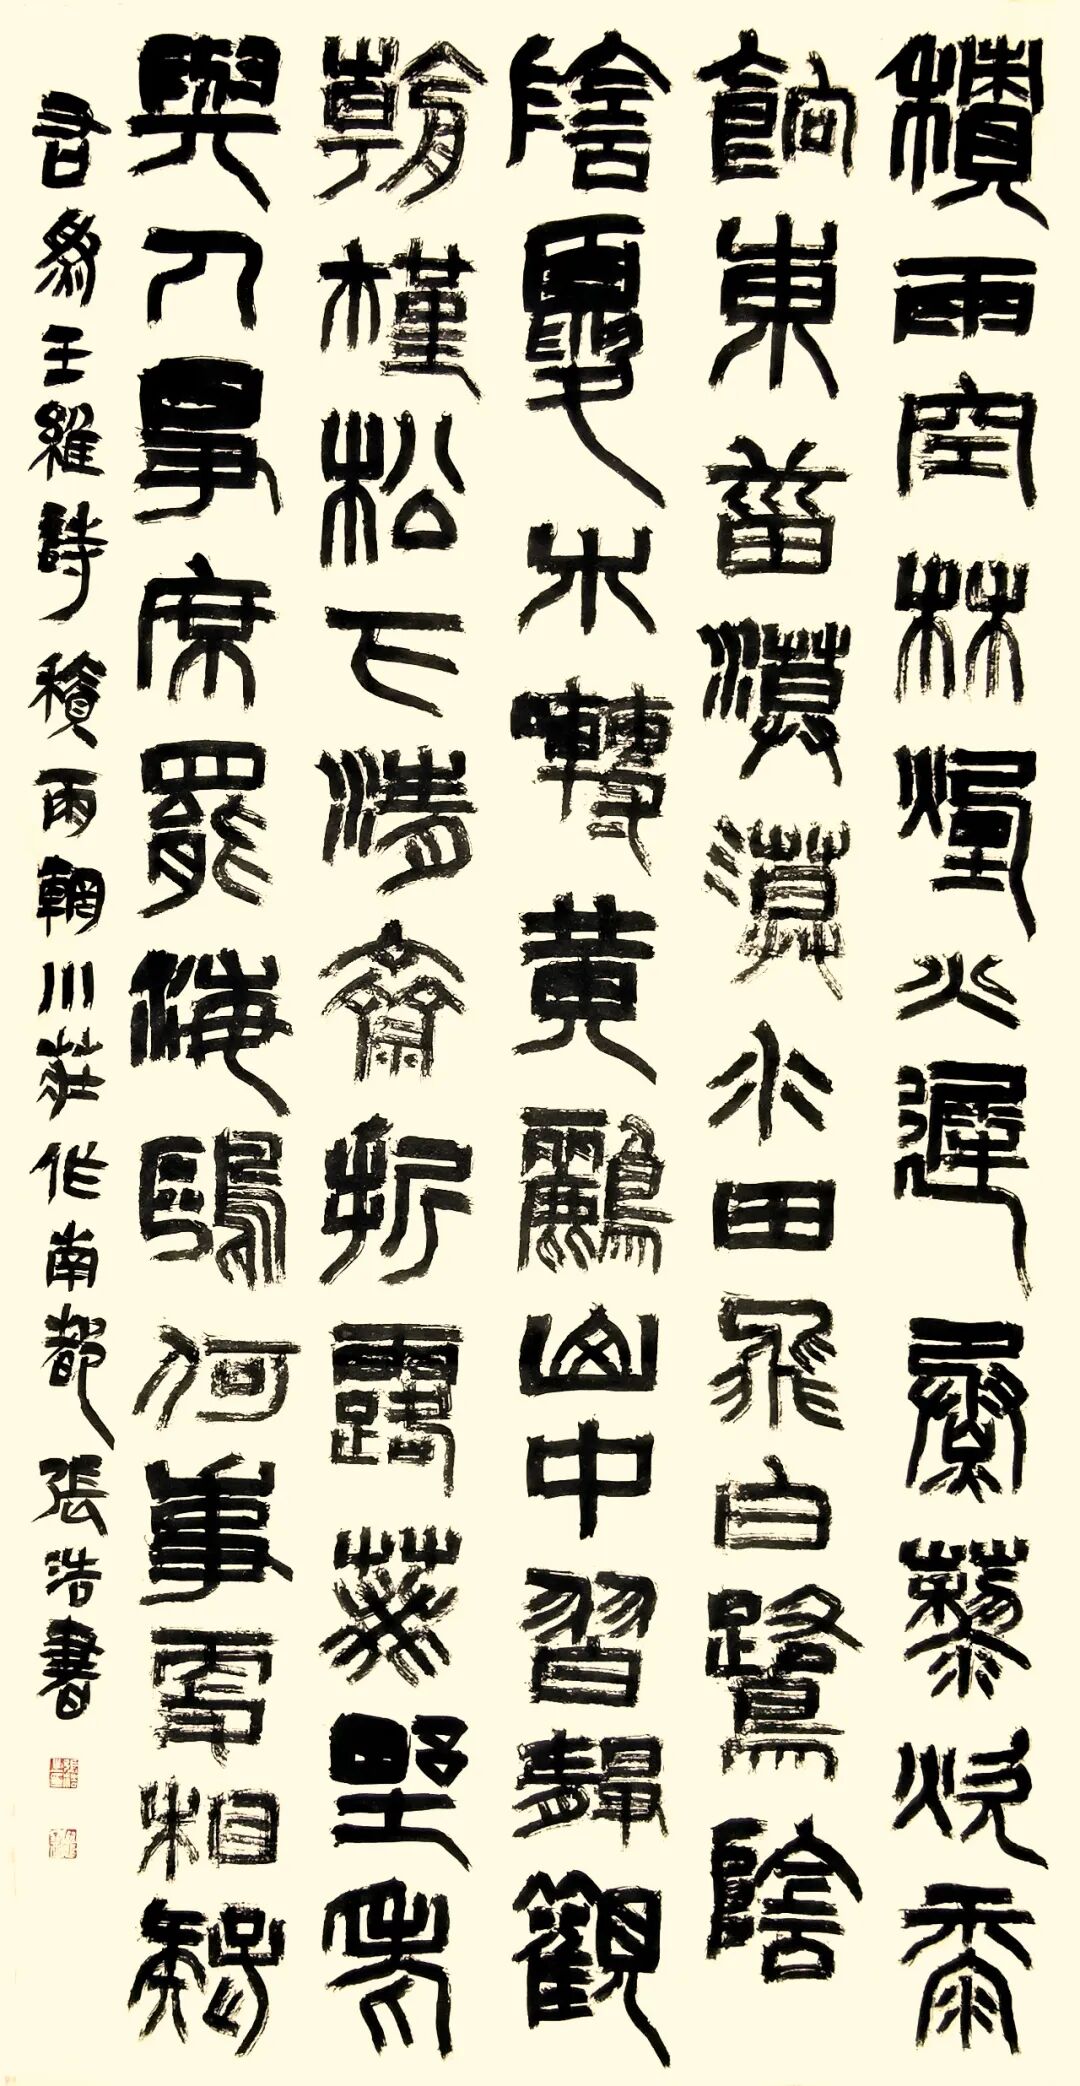 積雨空林煙火遲蒸藜炊黍
餉東菑漠漠水田飛白鷺陰
陰夏木囀黃鸝山中習靜觀
朝槿松下清齋折露葵野老
與人爭席罷海鷗何事更相疑
右為王維詩積雨輞川莊作南都張浩書